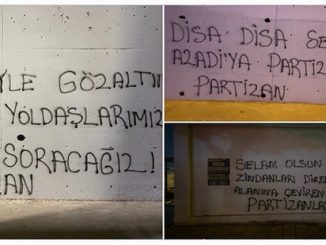 YLE GÖZALTI
YOLDAŞLARIMIZ
SORACAĞIZ!
AN
DISA DISA SE
AZADİ'YA PARTİZ
PARTİZAN
SELAM OLSUN
ZİNDANLARI DİRE
ALANINA ÇEVİREN
PARTİZANLA